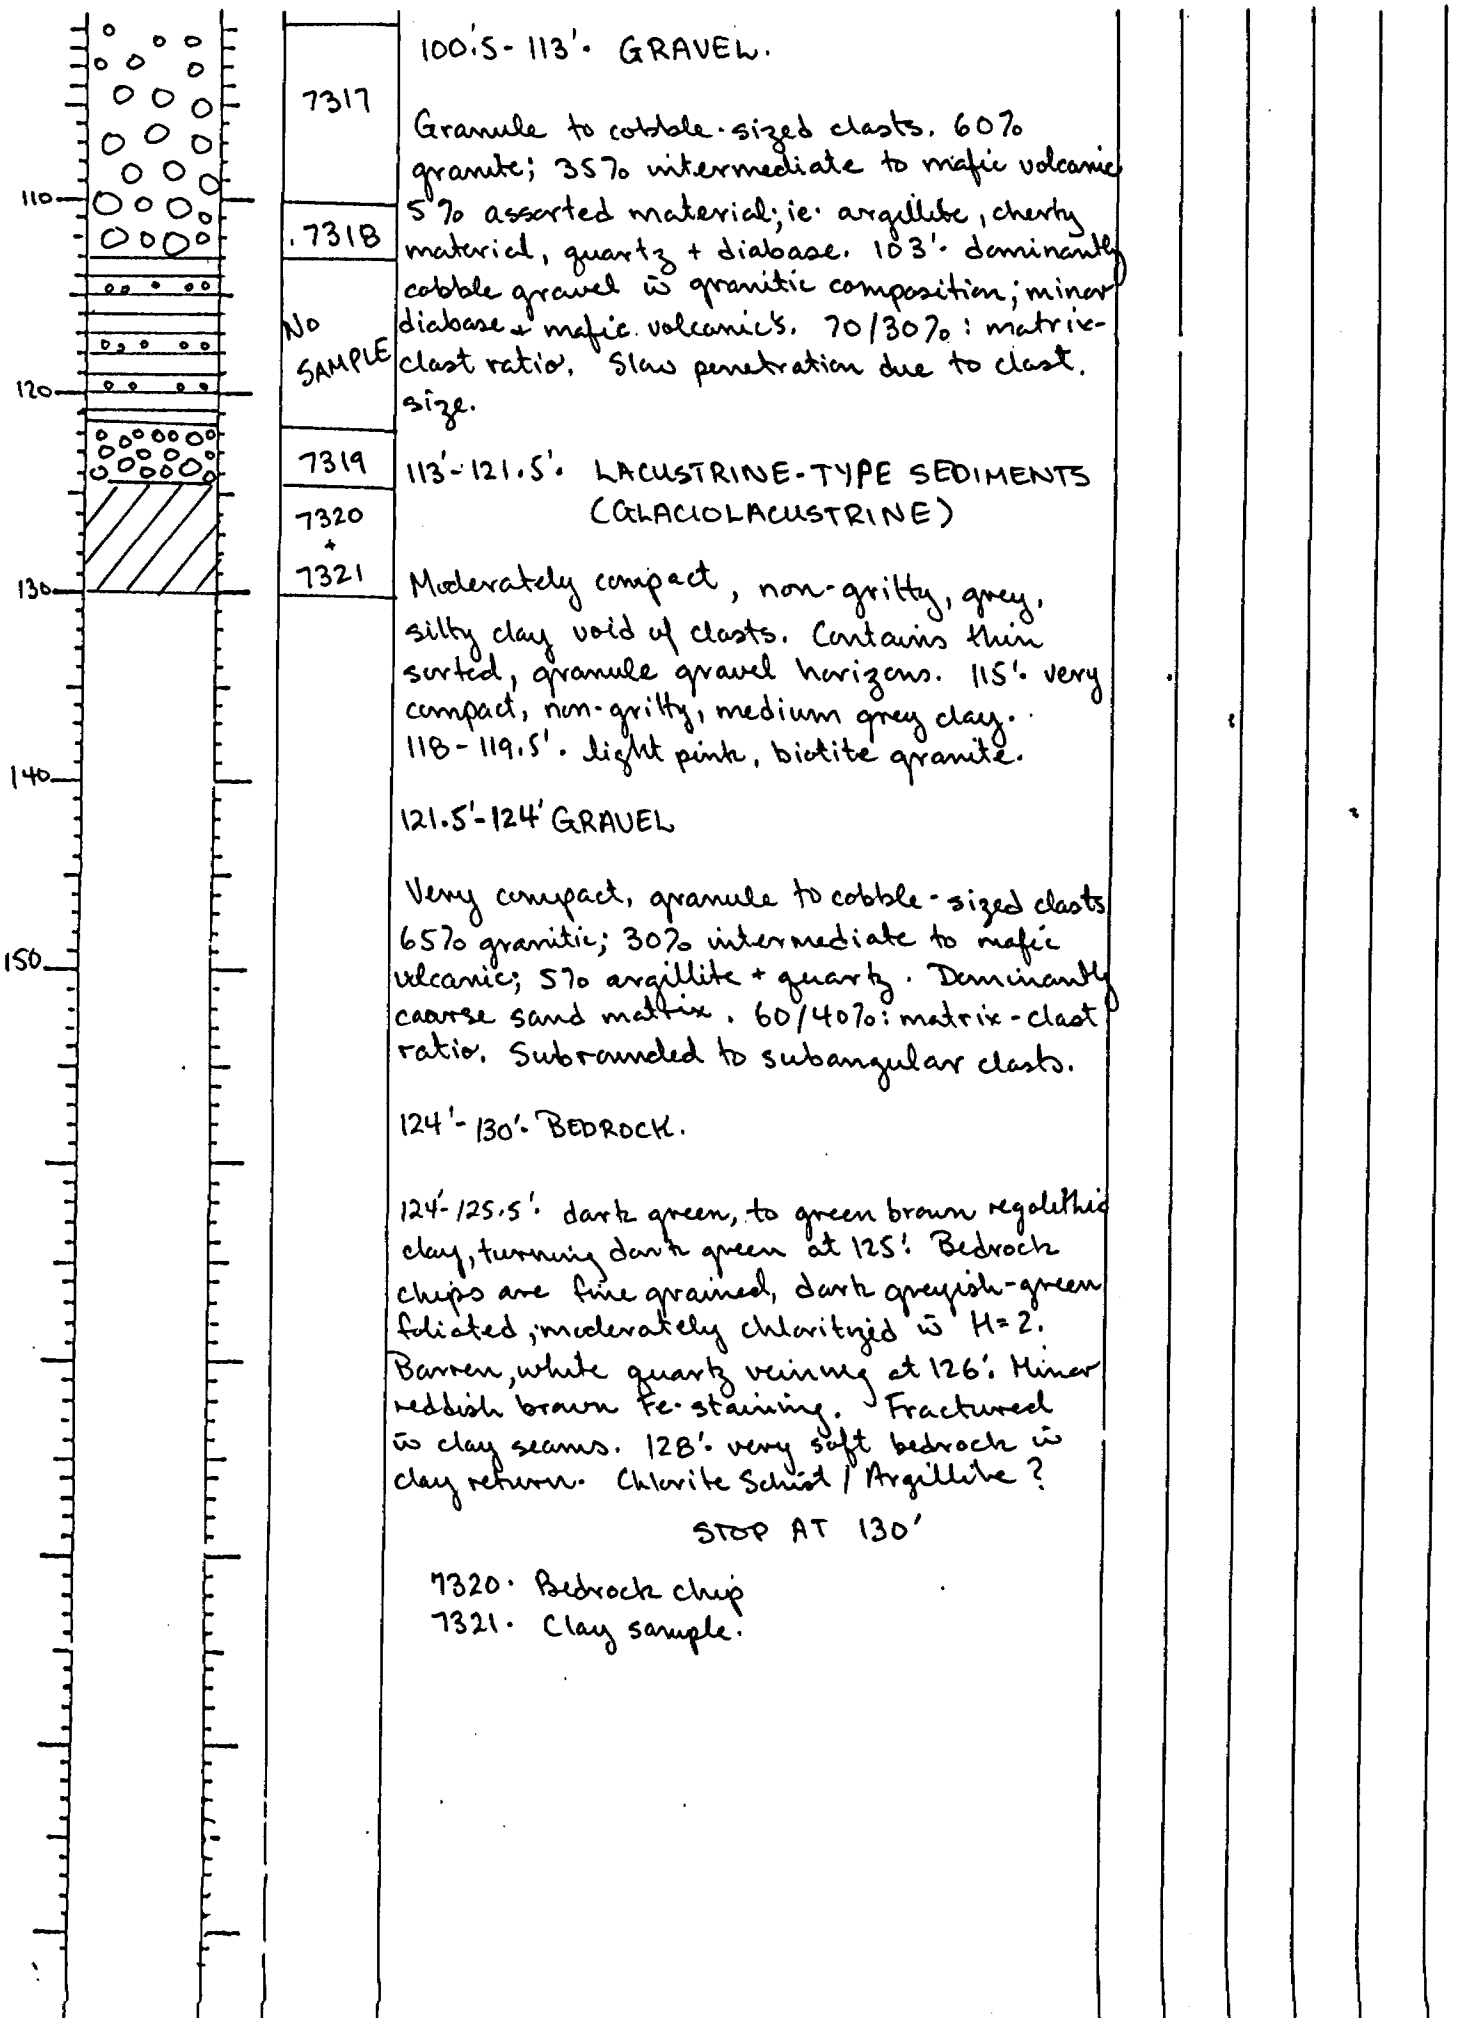 100.'5 - 113'. GRAVEL.
7317
Granule to cobble-sized clasts. 60%
granite; 35% intermediate to mafic volcanic
110
5% assorted material; ie. argillite, cherty
.7318
material, quartz + diabase. 103'. dominantly
cobble gravel w̄ granitic composition; minor
No
SAMPLE
diabase + mafic volcanic's. 70/30%: matrix-
clast ratio. Slow penetration due to clast.
120
size.
7319
113'-121.5'. LACUSTRINE-TYPE SEDIMENTS
(GLACIOLACUSTRINE)
7320
+
7321
130
Moderately compact, non-gritty, grey,
silty clay void of clasts. Contains thin
sorted, granule gravel horizons. 115'. very
compact, non-gritty, medium grey clay.
118-119.5'. light pink, biotite granite.
140
121.5'-124' GRAVEL
Very compact, granule to cobble-sized clasts
65% granitic; 30% intermediate to mafic
150
volcanic; 5% argillite + quartz. Dominantly
coarse sand matrix. 60/40%: matrix-clast
ratio. Subrounded to subangular clasts.
124'-130'. BEDROCK.
124'-125.5'. dark green, to green brown regolithic
clay, turning dark green at 125'. Bedrock
chips are fine grained, dark greyish-green
foliated; moderately chloritized w̄ H=2.
Barren, white quartz veining at 126'. Minor
reddish brown Fe-staining. Fractured
w̄ clay seams. 128'. very soft bedrock w̄
clay return. Chlorite Schist / Argillite?
STOP AT 130'
7320. Bedrock chip
7321. Clay sample.